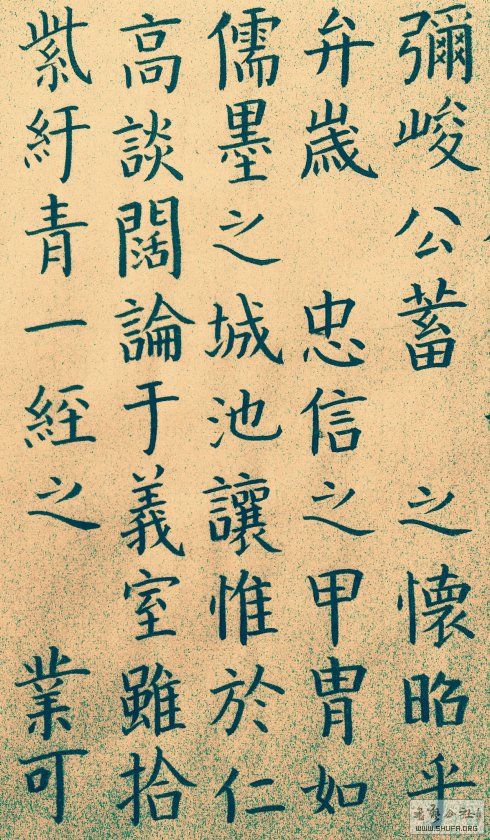 彌峻公蓄之懷昭乎
弁歲忠信之甲冑如
儒墨之城池讓惟於仁
高談闊論于義室雖拾
紫紆青一經之業可
WWW.SHUFA.ORG